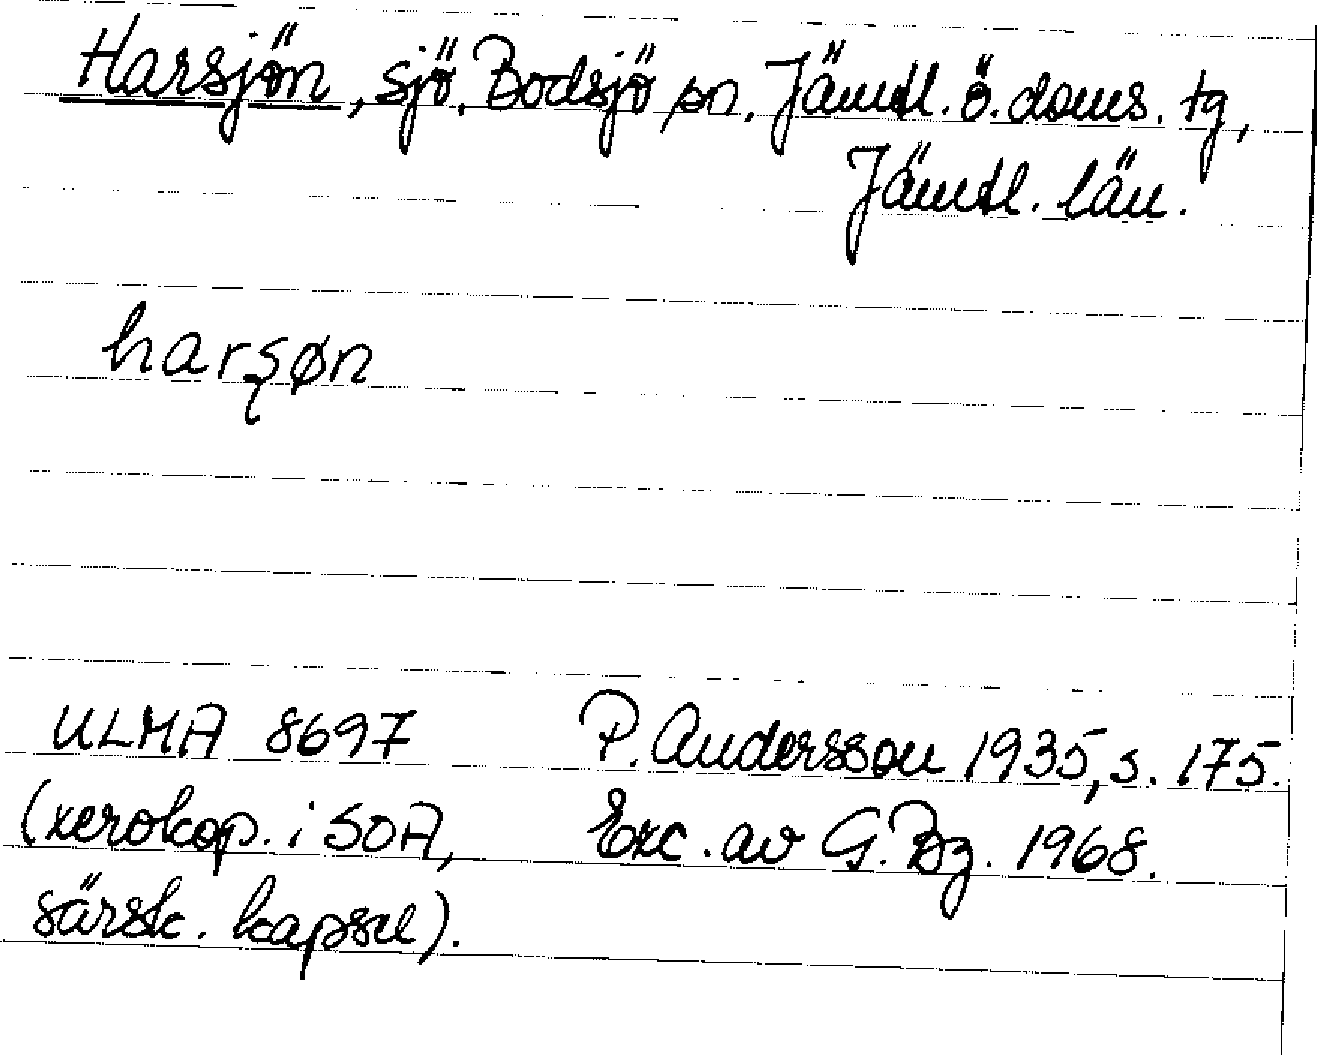 Harsjön, sjö, Bodsjö sn, Jämtl. ö. doms. tg,
Jämtl. län.
harʂøn
ULMA 8697 P. Andersson 1935, s. 175.
(xerokop. i SOA, Exc. av G. Bz. 1968.
särsk. kapsel).